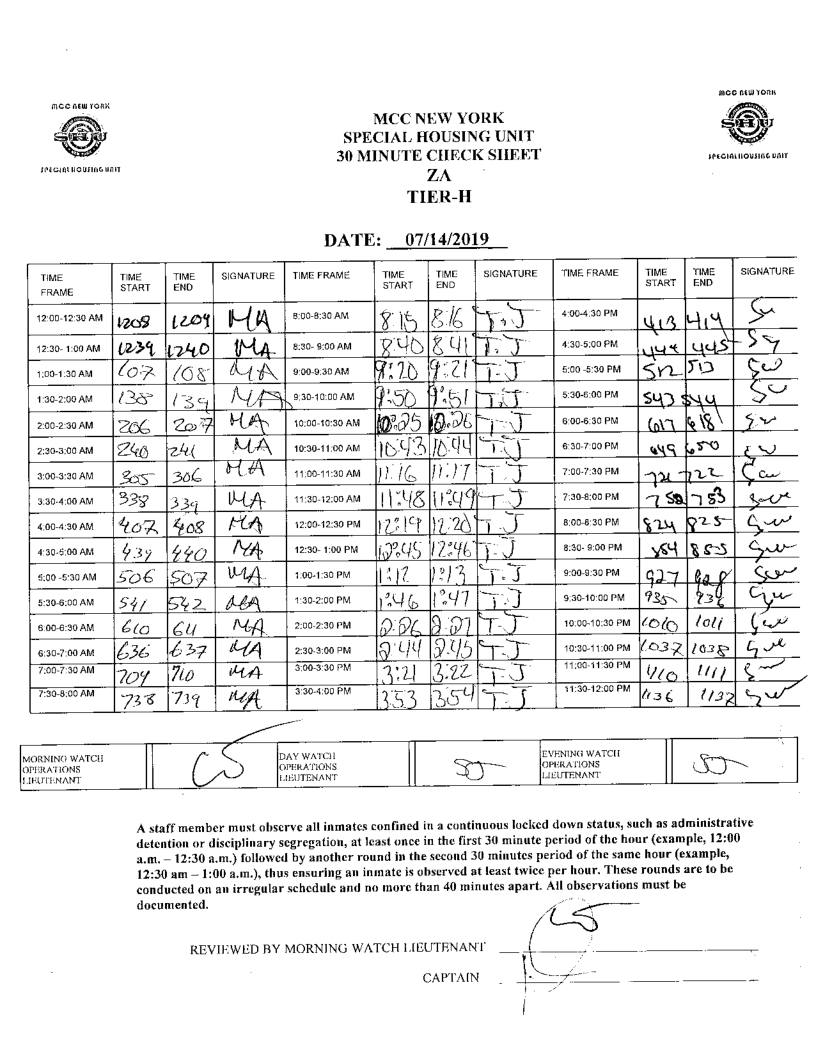 MCC NEW YORK
SHU
SPECIAL HOUSING UNIT
MCC NEW YORK
SHU
SPECIAL HOUSING UNIT
MCC NEW YORK
SPECIAL HOUSING UNIT
30 MINUTE CHECK SHEET
ZA
TIER-H
DATE: 07/14/2019
TIME FRAME TIME START TIME END SIGNATURE TIME FRAME TIME START TIME END SIGNATURE TIME FRAME TIME START TIME END SIGNATURE
12:00-12:30 AM 1208 1209 MA 8:00-8:30 AM 8:15 8:16 T.J 4:00-4:30 PM 413 414
12:30- 1:00 AM 1239 1240 MA 8:30- 9:00 AM 8:40 8:41 T.J 4:30-5:00 PM 444 445
1:00-1:30 AM 107 108 MA 9:00-9:30 AM 9:20 9:21 T.J 5:00 -5:30 PM 512 513
1:30-2:00 AM 138 139 MA 9:30-10:00 AM 9:50 9:51 T.J 5:30-6:00 PM 543 544
2:00-2:30 AM 206 207 MA 10:00-10:30 AM 10:25 10:26 T.J 6:00-6:30 PM 617 618
2:30-3:00 AM 240 241 MA 10:30-11:00 AM 10:43 10:44 T.J 6:30-7:00 PM 649 650
3:00-3:30 AM 305 306 MA 11:00-11:30 AM 11:16 11:17 T.J 7:00-7:30 PM 721 722
3:30-4:00 AM 338 339 MA 11:30-12:00 AM 11:48 11:49 T.J 7:30-8:00 PM 752 753
4:00-4:30 AM 407 408 MA 12:00-12:30 PM 12:19 12:20 T.J 8:00-8:30 PM 824 825
4:30-5:00 AM 439 440 MA 12:30- 1:00 PM 12:45 12:46 T.J 8:30- 9:00 PM 854 855
5:00 -5:30 AM 506 507 MA 1:00-1:30 PM 1:12 1:13 T.J 9:00-9:30 PM 927 928
5:30-6:00 AM 541 542 MA 1:30-2:00 PM 1:46 1:47 T.J 9:30-10:00 PM 935 936
6:00-6:30 AM 610 611 MA 2:00-2:30 PM 2:26 2:27 T.J 10:00-10:30 PM 1010 1011
6:30-7:00 AM 636 637 MA 2:30-3:00 PM 2:44 2:45 T.J 10:30-11:00 PM 1037 1038
7:00-7:30 AM 709 710 MA 3:00-3:30 PM 3:21 3:22 T.J 11:00-11:30 PM 1110 1111
7:30-8:00 AM 738 739 MA 3:30-4:00 PM 3:53 3:54 T.J 11:30-12:00 PM 1136 1137
MORNING WATCH OPERATIONS LIEUTENANT CS DAY WATCH OPERATIONS LIEUTENANT EVENING WATCH OPERATIONS LIEUTENANT
A staff member must observe all inmates confined in a continuous locked down status, such as administrative
detention or disciplinary segregation, at least once in the first 30 minute period of the hour (example, 12:00
a.m. – 12:30 a.m.) followed by another round in the second 30 minutes period of the same hour (example,
12:30 am – 1:00 a.m.), thus ensuring an inmate is observed at least twice per hour. These rounds are to be
conducted on an irregular schedule and no more than 40 minutes apart. All observations must be
documented.
REVIEWED BY MORNING WATCH LIEUTENANT CS
CAPTAIN